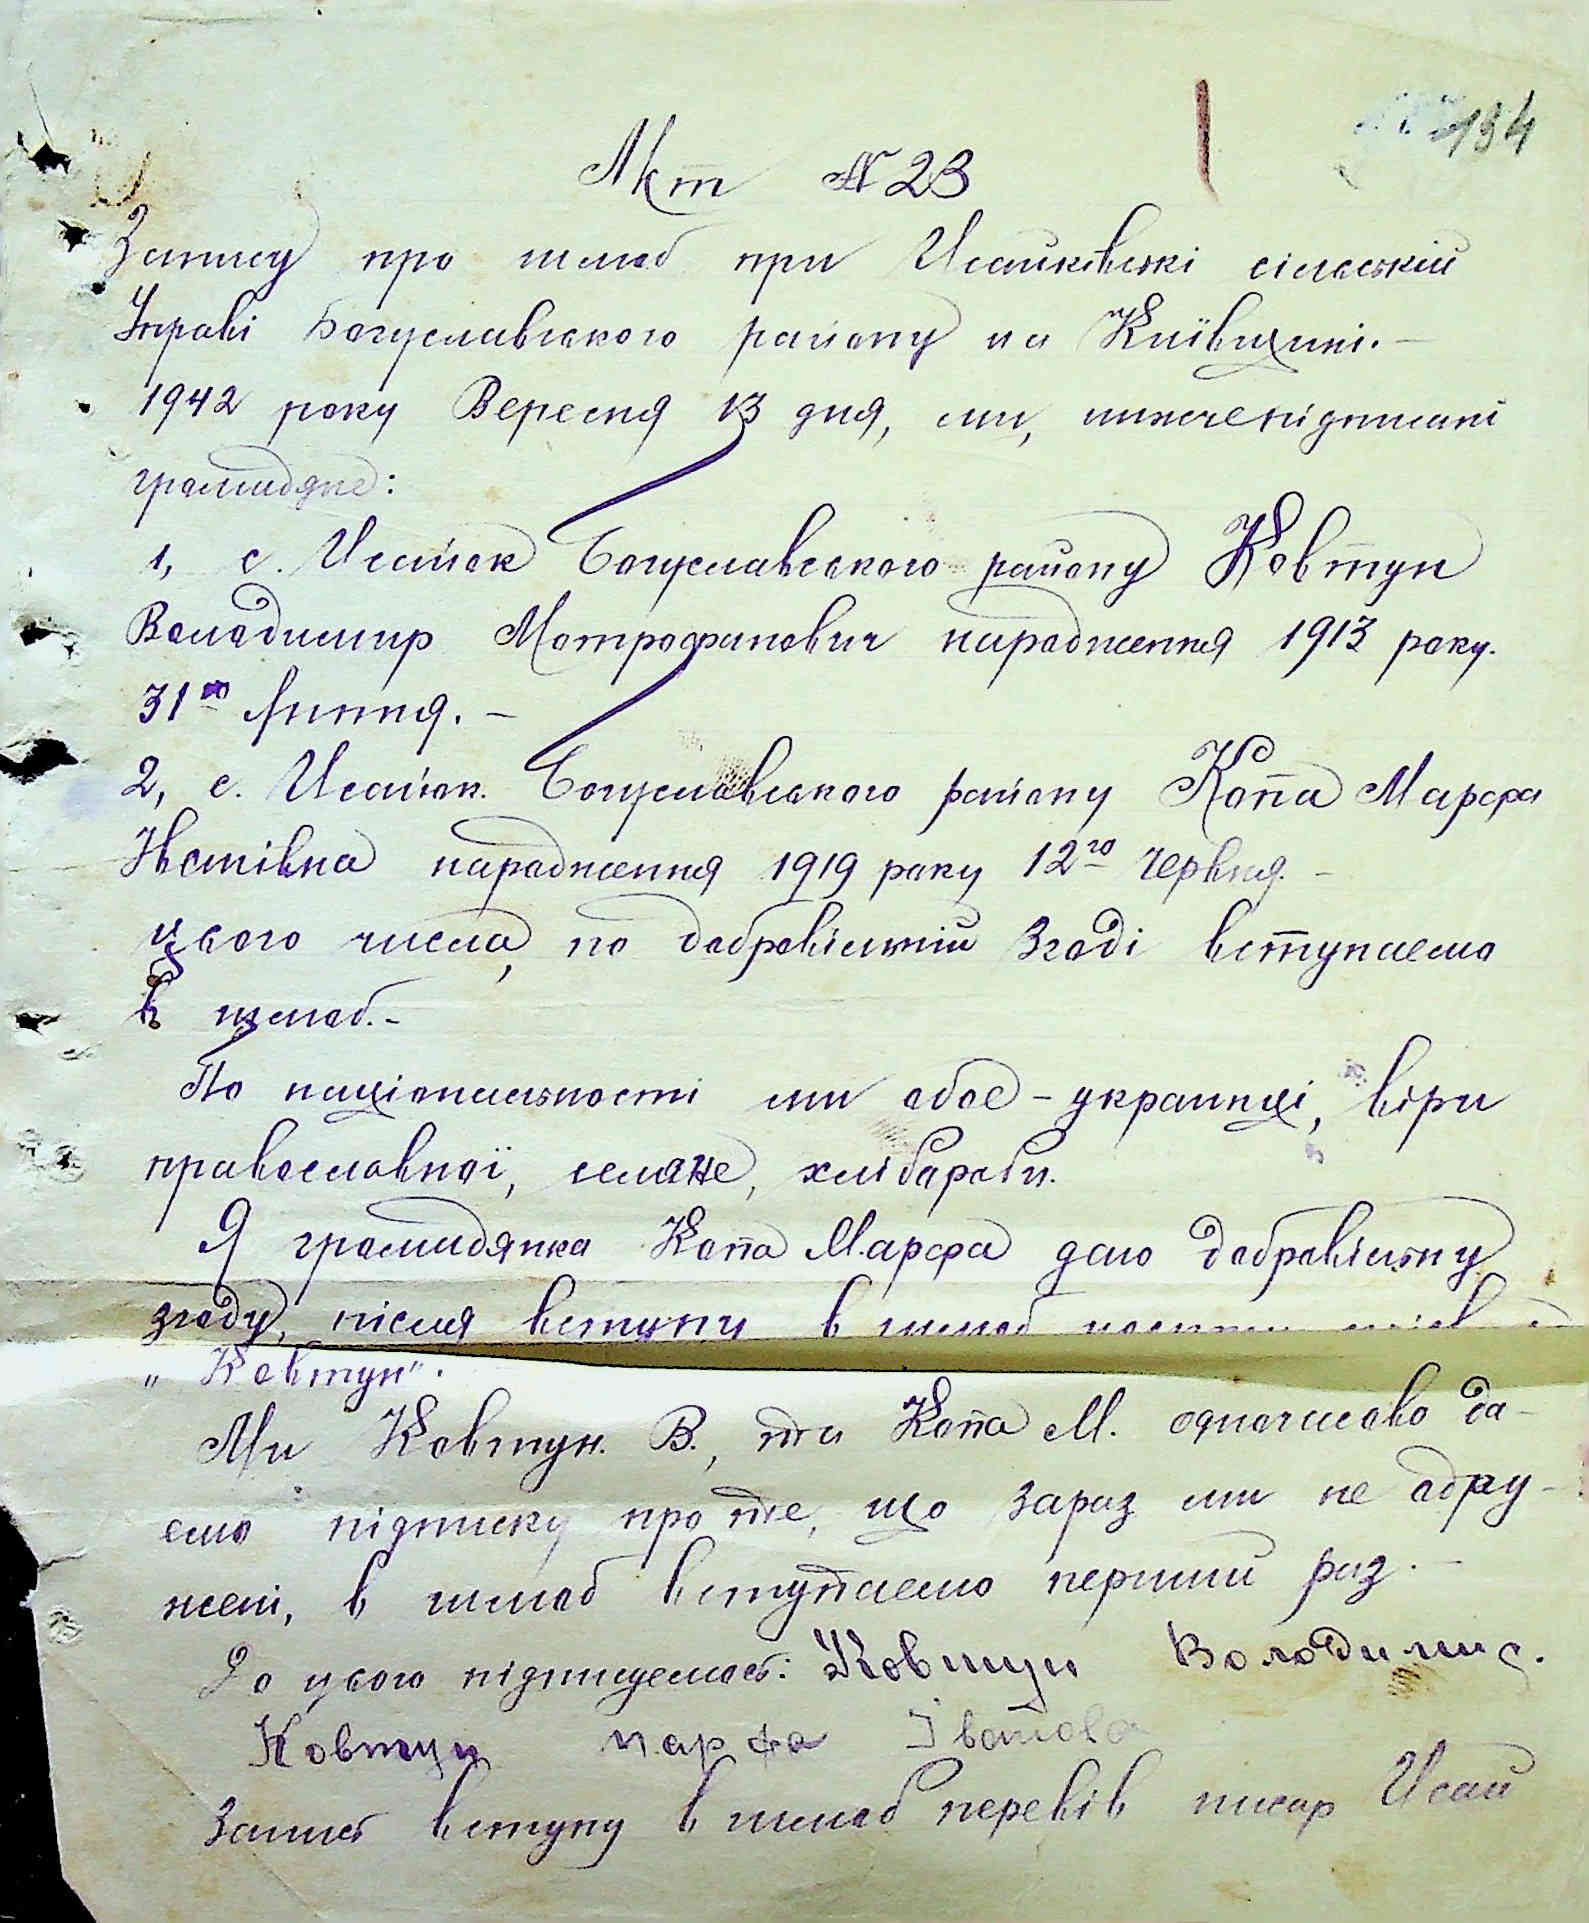 194
Акт № 23
Запису про шлюб при Исайківські сільській
Управі Богуславського району на Київщині.-
1942 року Вересня 13 дня, ми, нижчепідписані
громадяне:
1, с. Исайок Богуславського району Ковтун
Володимир Мотрофанович народження 1913 року.
31го Липня. -
2, с. Исайок. Богуславського району Копа Марфа
народження 1919 року 12го Червня. -
цього числа, по добровільній згоді вступаемо
в шлюб.-
По національности ми обоє - украинці, віри
православної, селяне, хлібароби.
Я громадянка Копа Марфа даю добровільну
згоду, після вступу в шлюб носити
„Ковтун".
Ми Ковтун. В., та Копа М. одночасово да-
емо підписку про те, що зараз ми не одру-
жені, в шлюб вступаемо перший раз. -
До цього підписуемось: Ковтун Володимир.
Ковтун Марфа
Запись вступу в шлюб перевів писар Исай